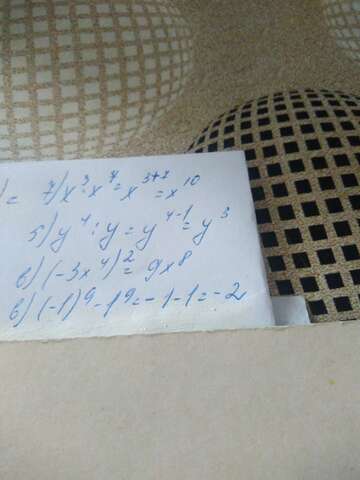 ) = 7) x³ · x⁷ = x³⁺⁷ = x¹⁰
5) y⁴ : y = y⁴⁻¹ = y³
в) (-3x⁴)² = 9x⁸
в) (-1)⁹ - 1⁹ = -1 - 1 = -2